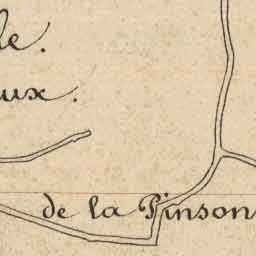 le.
aux.
de la Pinson